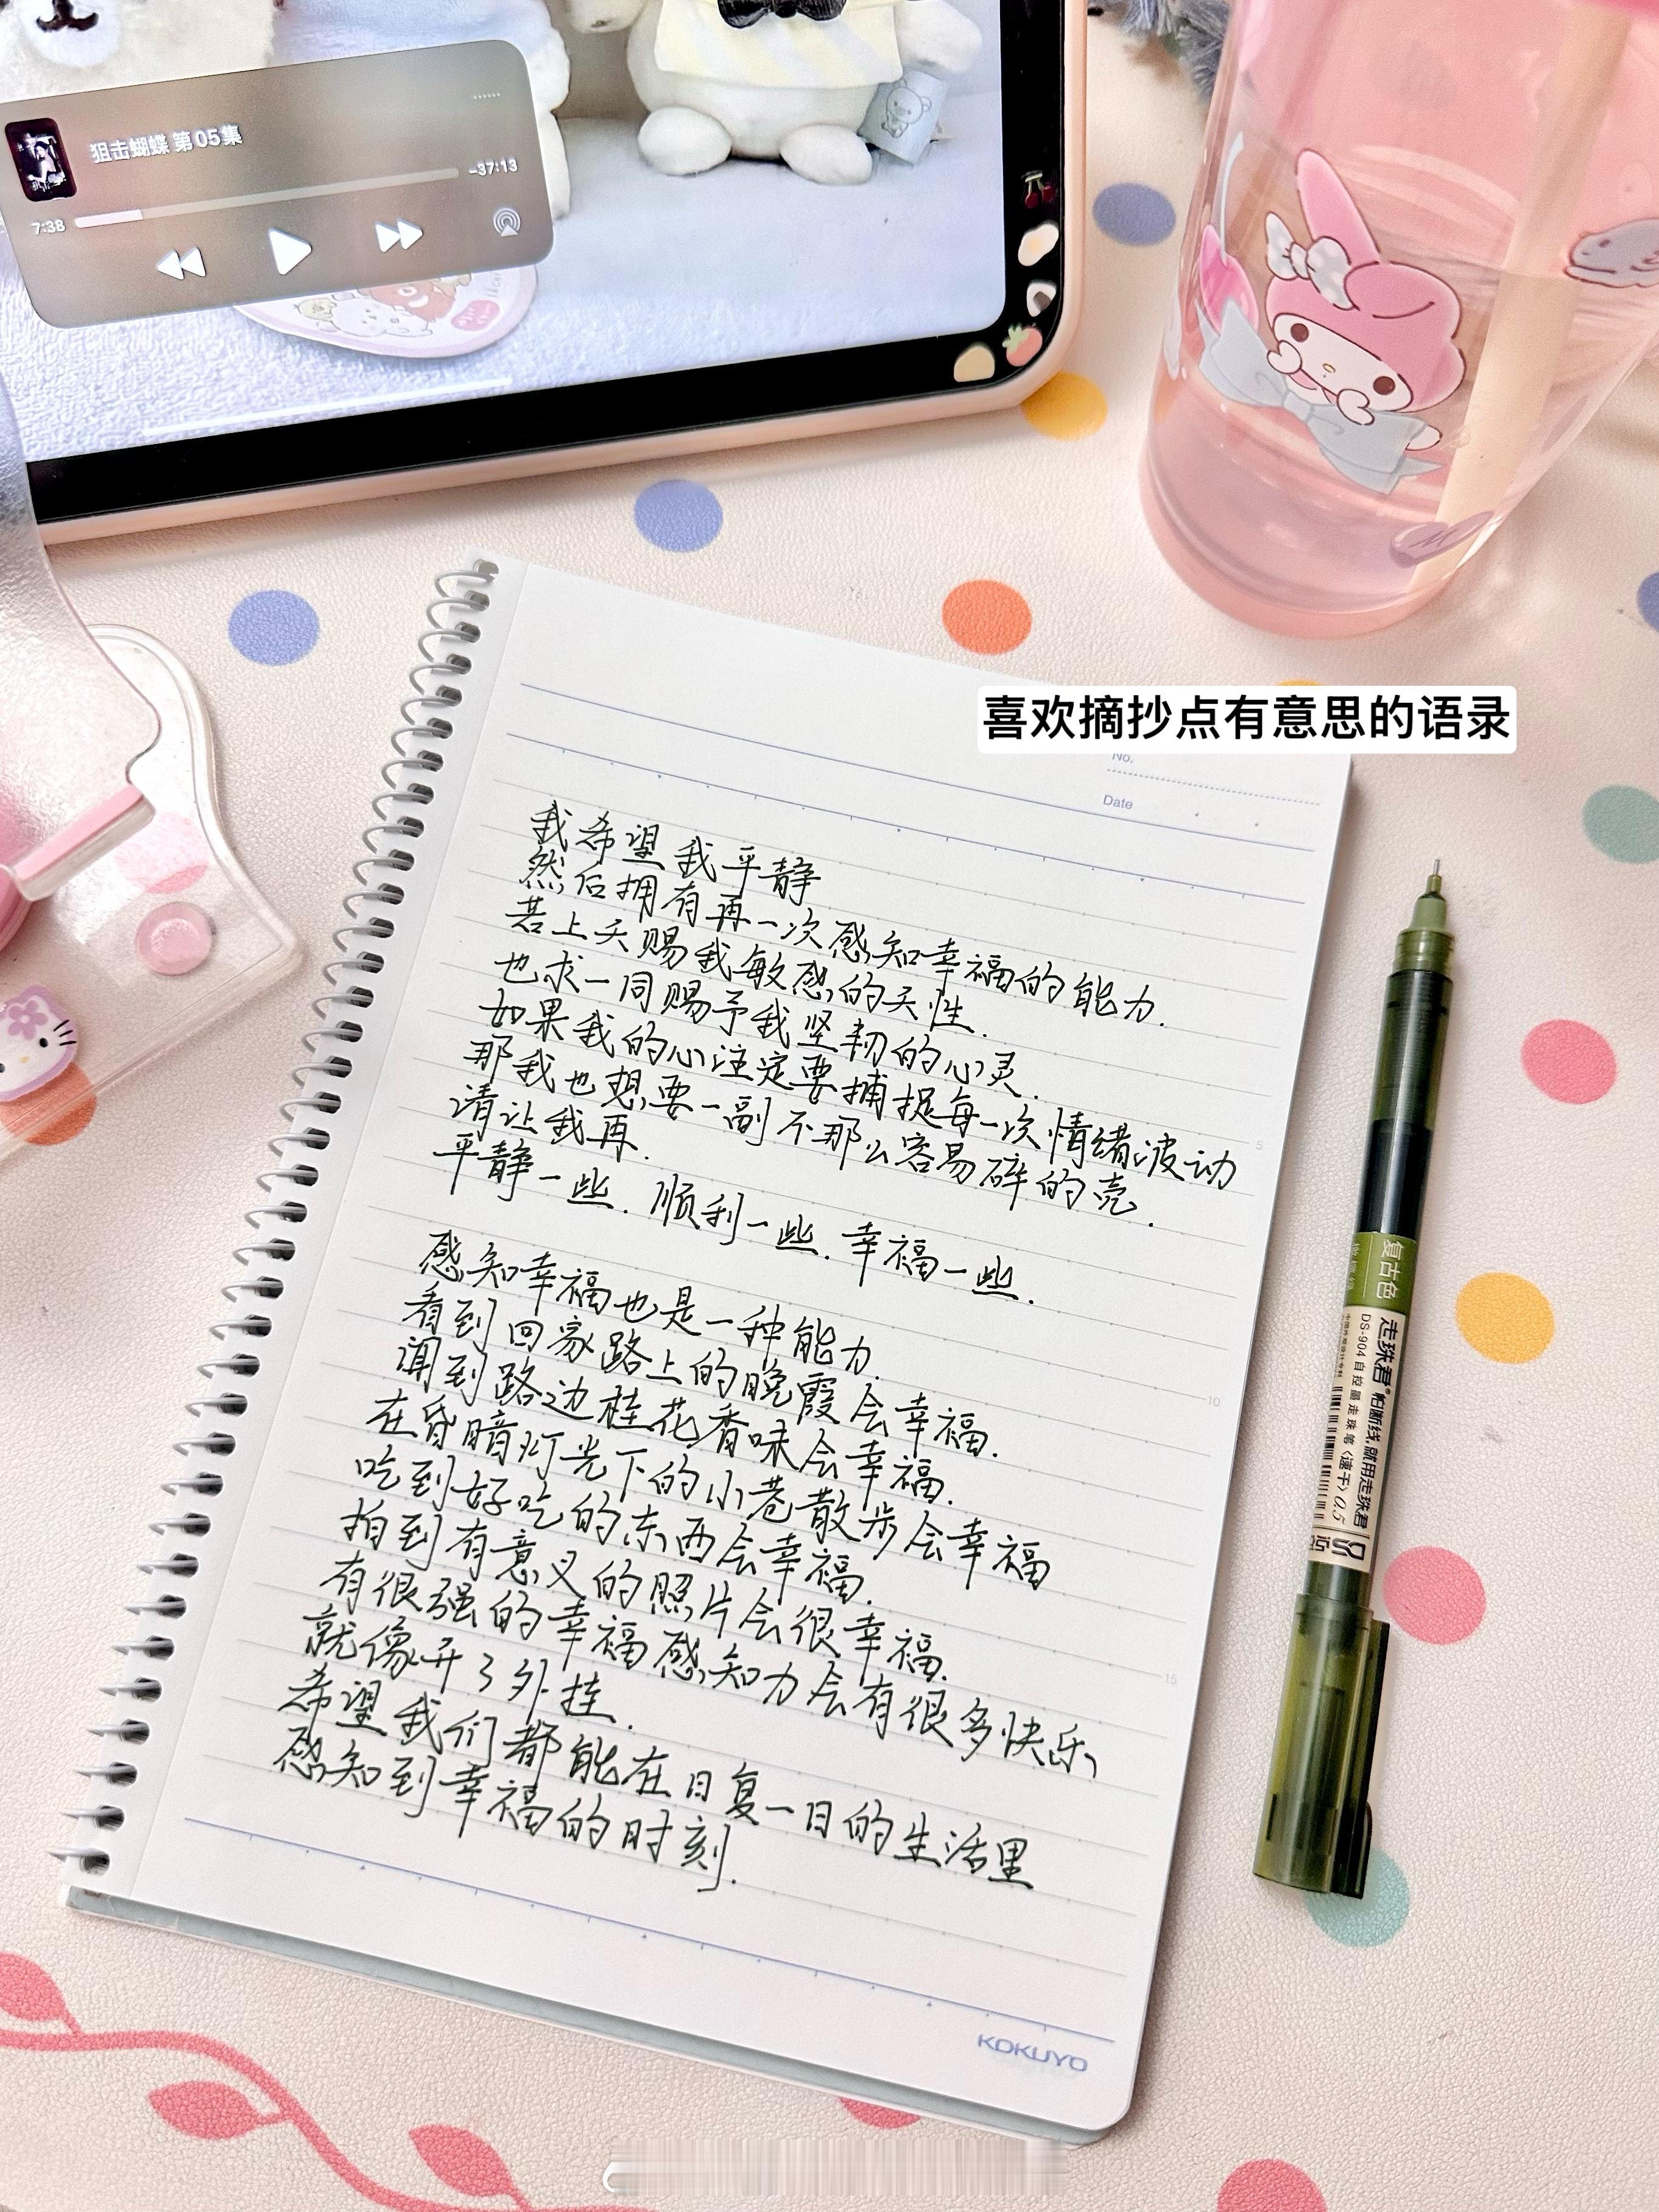 狙击蝴蝶 第05集
7:38
-37:13
喜欢摘抄点有意思的语录
No.
Date
我希望我平静
然后拥有再一次感知幸福的能力.
若上天赐我敏感的天性.
也求一同赐予我坚韧的心灵.
如果我的心注定要捕捉每一次情绪波动
那我也想要一副不那么容易碎的壳.
请让我再.
平静一些.顺利一些.幸福一些.
感知幸福也是一种能力.
看到回家路上的晚霞会幸福.
闻到路边桂花香味会幸福.
在昏暗灯光下的小巷散步会幸福
吃到好吃的东西会幸福.
拍到有意义的照片会很幸福.
有很强的幸福感知力会有很多快乐,
就像开了外挂.
希望我们都能在日复一日的生活里
感知到幸福的时刻.
5
10
15
KOKUYO
复古色
走珠君® 怕断线,就用走珠君
DS-904 自控墨走珠笔(速干) 0.5